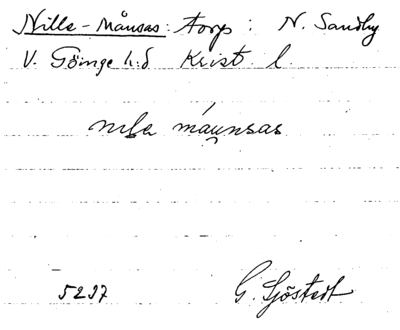 Nilla-Månsas: torp: N. Sandby
V. Göinge h:d Krist. l.
nɪla máu̯nsas
5297 G. Sjöstedt